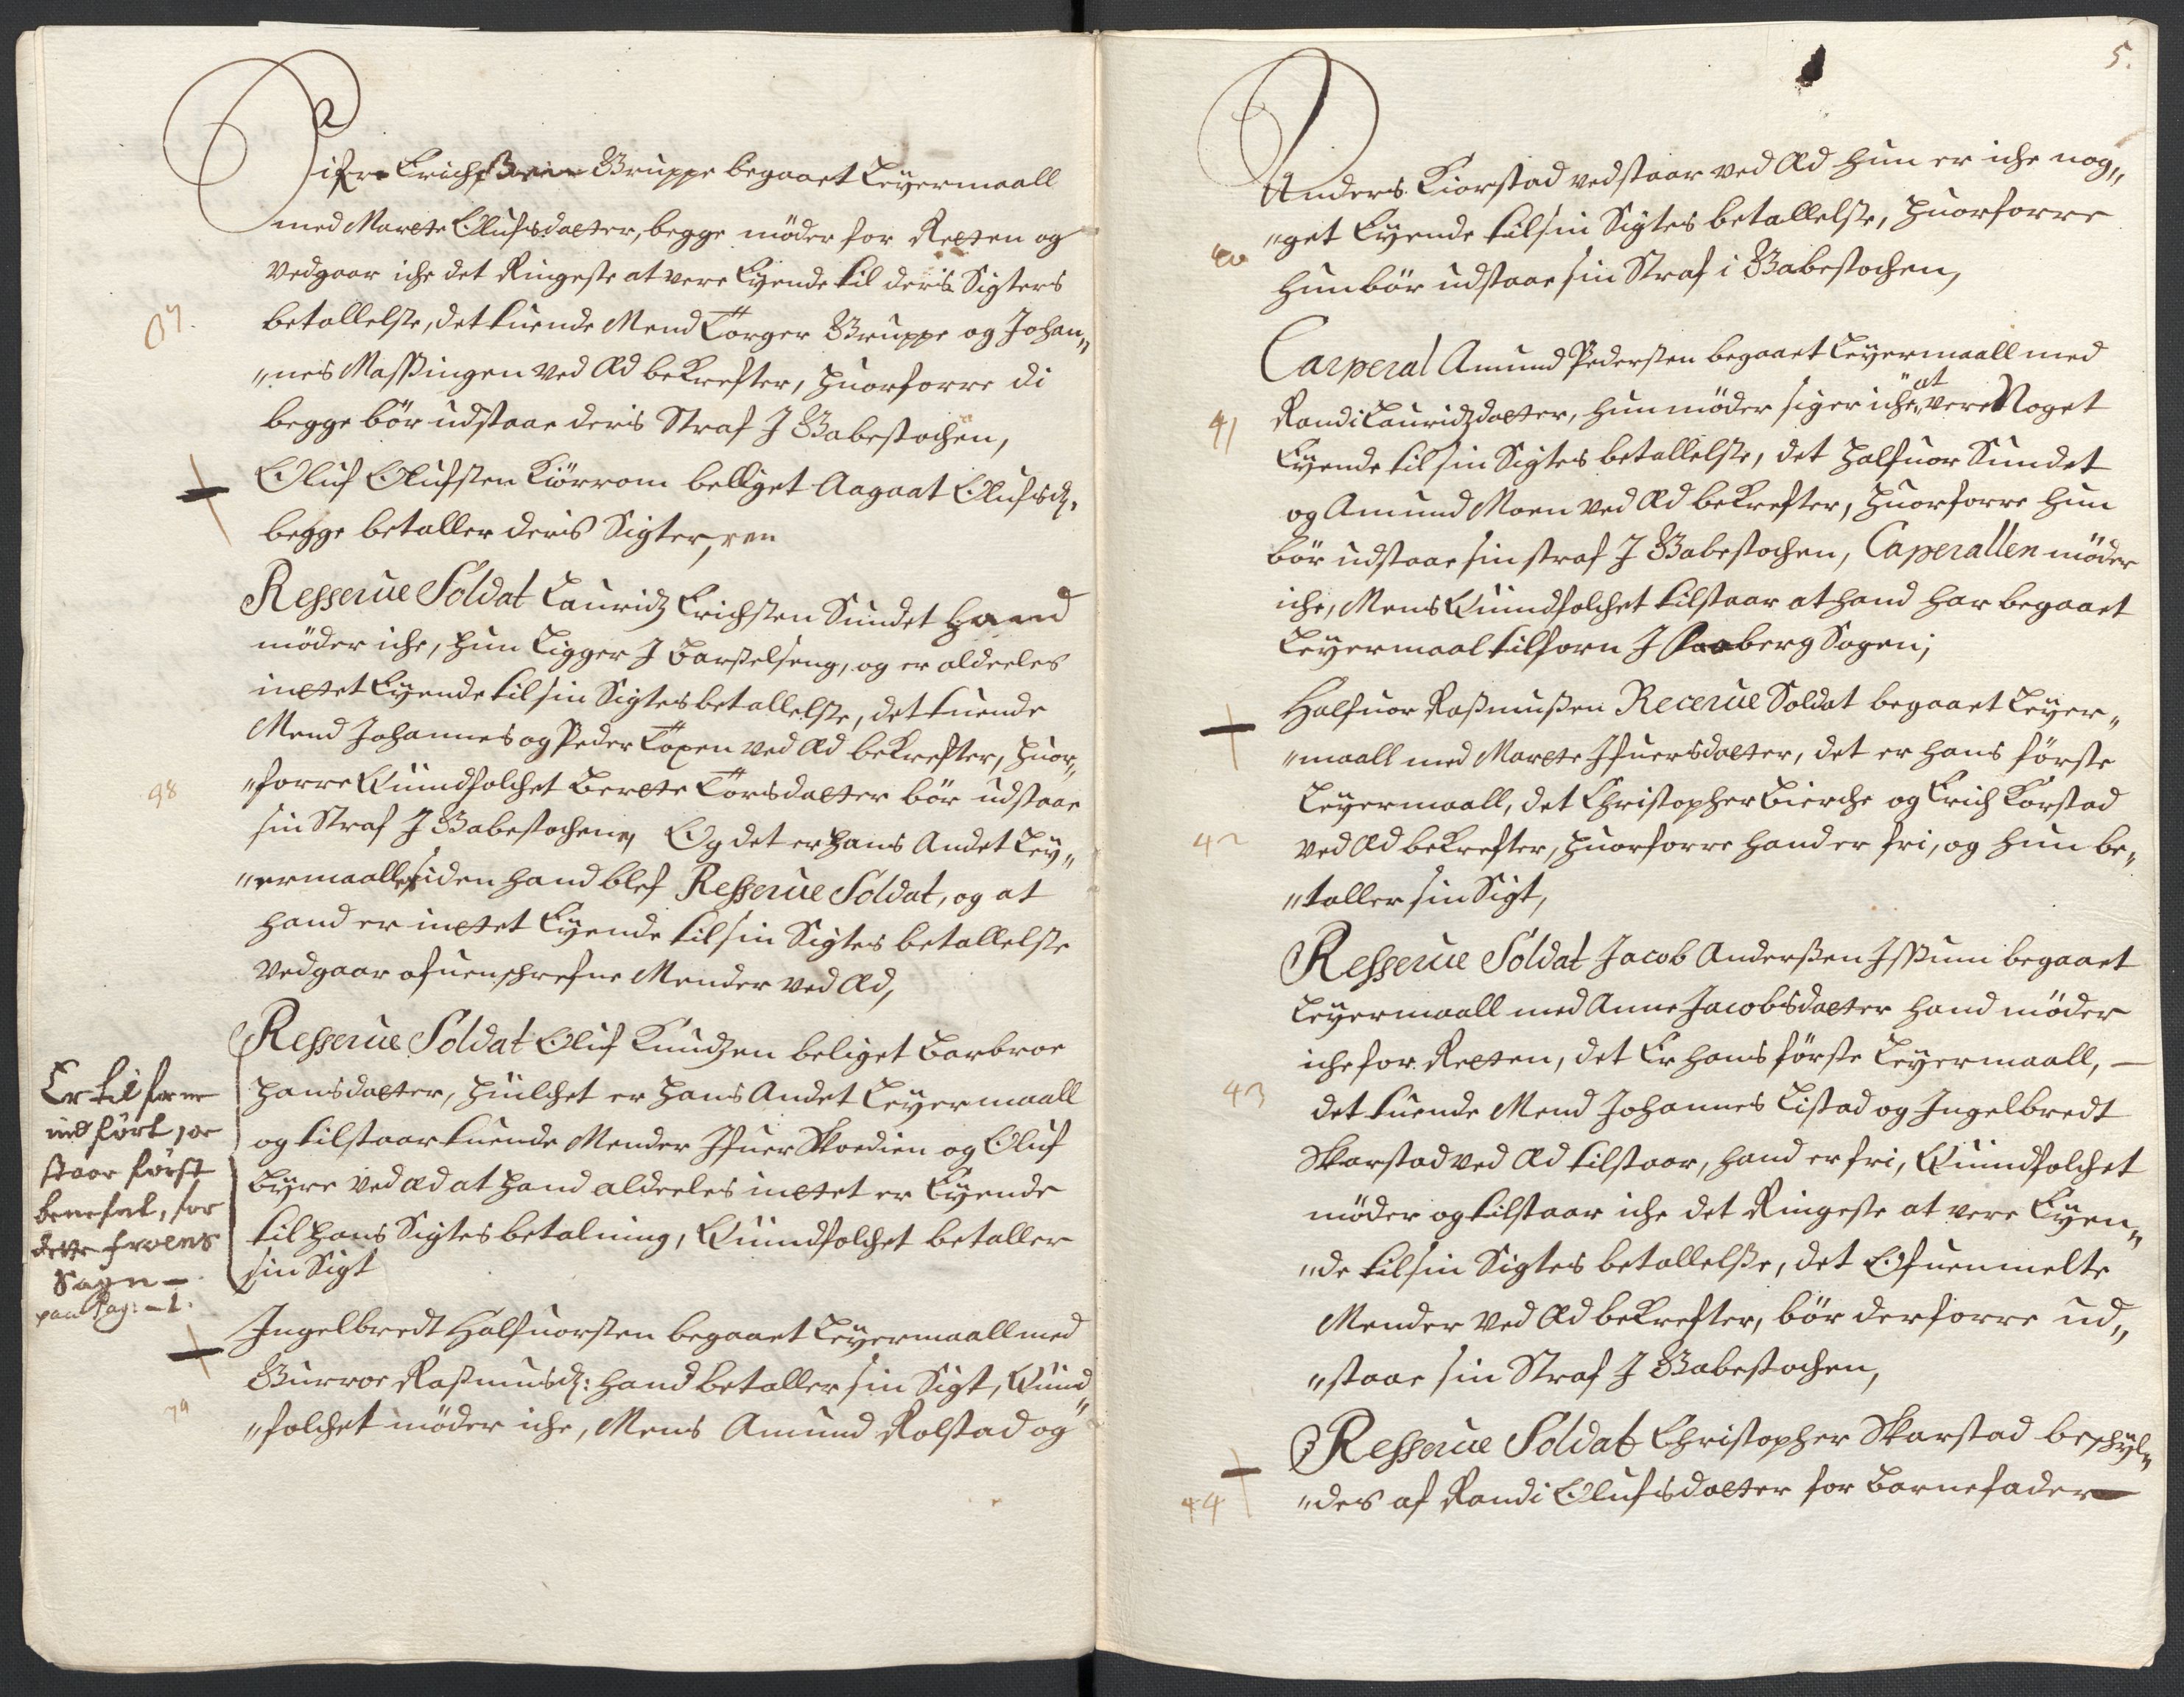 Erichßen Gruppe begaaet Leÿermaall
med Marete Olufsdaeter, begge möder for Retten og
Vedgaar iche det Ringeste at vere Eÿende til deris Sigters
betallelse, det tuende Mend Törger Gruppe og Johan„
„nes Massingen ved Æd bekrefter, huorforre di
begge bör udstaae deris Straf J Gabestochen,
Oluf Olufsen Kiörrom belliget Aagaat Olufsd:
begge betaller deris Sigter,
Resserue Soldat Lauridz Erichsen Sundet Haand
möder iche, hun Ligger J Barselseng, og er aldeeles
intet Eÿende til sin Sigtes betallelse, det tuende
Mend Johannes og Peder Töxen ved Æd bekrefter, huor„
„forre Quindfolchet Berete Törsdaeter bör udstaae
98
sin Straf J Gabestochene, Og det er hans Andet Leÿ„
„ermaalle siden hand blef Resserue Soldat, og at
hand er intet Eÿende til sin Sigtes betallelse
Vedgaar ofuenschrefne Mender ved Æd,
Resserue Soldat Oluf Knudzen beliget Barbroe
Hansdaeter, huilchet er hans Andet Leÿermaall
og tilstaar tuende Mender Ifuer Skoedien og Oluf
Bÿre ved æd at hand aldeeles intet er Eÿende
til hans Sigtes betalning, Quindfolchet betaller
sin Sigt
Er tilforne
indført,
staar først
benefnt, for
dette froens
Sagn –
paa Pag: – 1.
Ingelbredt Halfuorsen begaaet Leÿermaall med
Gurroe Rasmusd: hand betaller sin Sigt, Quind
„folchet möder iche, Mens Amund Rolstad og
5.
Anders Kiorstad vedstaar ved Æd hun er iche nog„
„get Eÿende til sin Sigtes betallelse, huorforre
40
hun bör udstaae sin Straf i Gabestochen,
Carperal Amund Pedersen begaaet Leÿermaall med
at
Randi Lauridzdaeter, hun möder siger iche vere Noget
41
Eÿende til sin Sigtes betallelse, det Halfuor Sundet
og Amund Moen ved Æd bekrefter, huorforre hun
bör udstaae sin straf J Gabestochen, Caperallen möder
iche, Mens Quindfolchet tilstaar at hand har begaaet
Leÿermaal tilforn J Faaberg Sogen;
Halfuor Rasmußen Recerue Soldat begaaet Leÿer„
„maall med Marete Ifuersdaeter, det er hans förste
Leÿermaall, det Christopher Bierche og Erich Korstad
42
ved Æd bekrefter, huorforre hand er fri, og hun be„
„taller sin Sigt,
Resserue Soldat Jacob Anderßen Issum begaaet
Leÿermaall med Anne Jacobsdaeter hand möder
iche for Retten, det Er hans förste Leÿermaall, –
43
det tuende Mend Johannes Listad og Ingelbredt
Skarstad ved Æd tilstaar, hand er fri, Quindfolchet
möder og tilstaar iche det Ringeste at vere Eÿen„
„de til sin Sigtes betallelße, det Ofuenmelte
Mender ved Æd bekrefter, bör derforre ud„
„staae sin Straf J Gabestochen,
Resserue Soldat Christopher Skarstad beschÿl„
44
„des af Randi Olufsdaeter for Barnefader